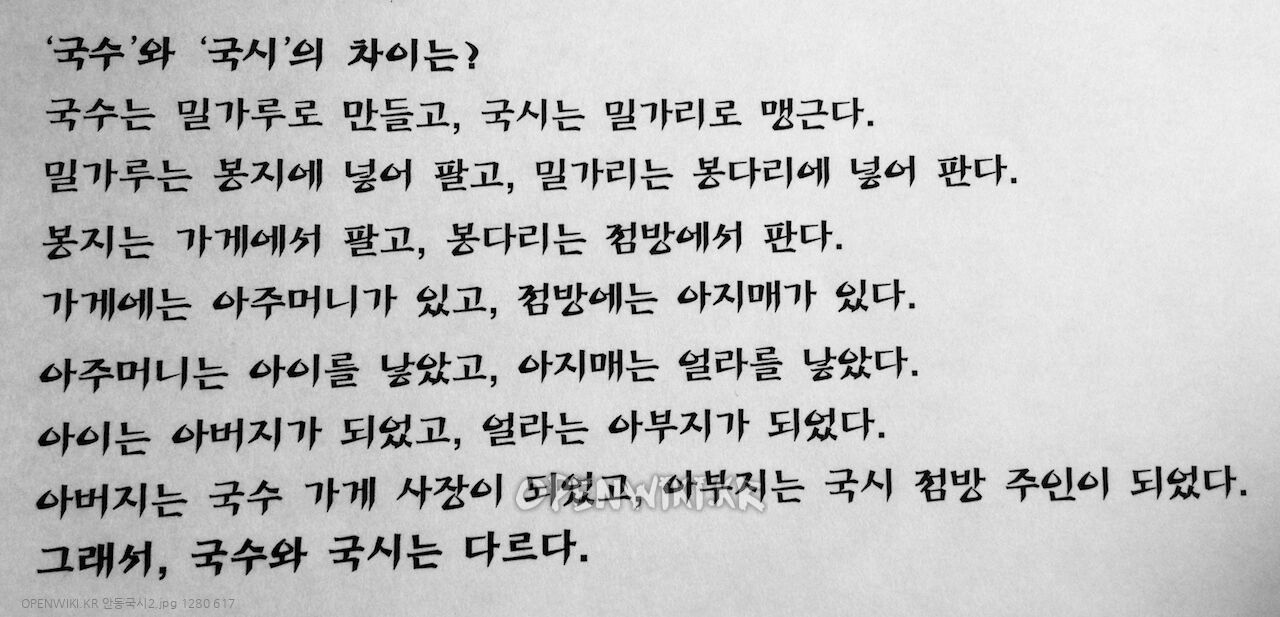 ‘국수’와 ‘국시’의 차이는?
국수는 밀가루로 만들고, 국시는 밀가리로 맹근다.
밀가루는 봉지에 넣어 팔고, 밀가리는 봉다리에 넣어 판다.
봉지는 가게에서 팔고, 봉다리는 점방에서 판다.
가게에는 아주머니가 있고, 점방에는 아지매가 있다.
아주머니는 아이를 낳았고, 아지매는 얼라를 낳았다.
아이는 아버지가 되었고, 얼라는 아부지가 되었다.
아버지는 국수 가게 사장이 되었고, 아부지는 국시 점방 주인이 되었다.
OPENWIKI.KR
그래서, 국수와 국시는 다르다.
OPENWIKI.KR 안동국시2.jpg 1280 617